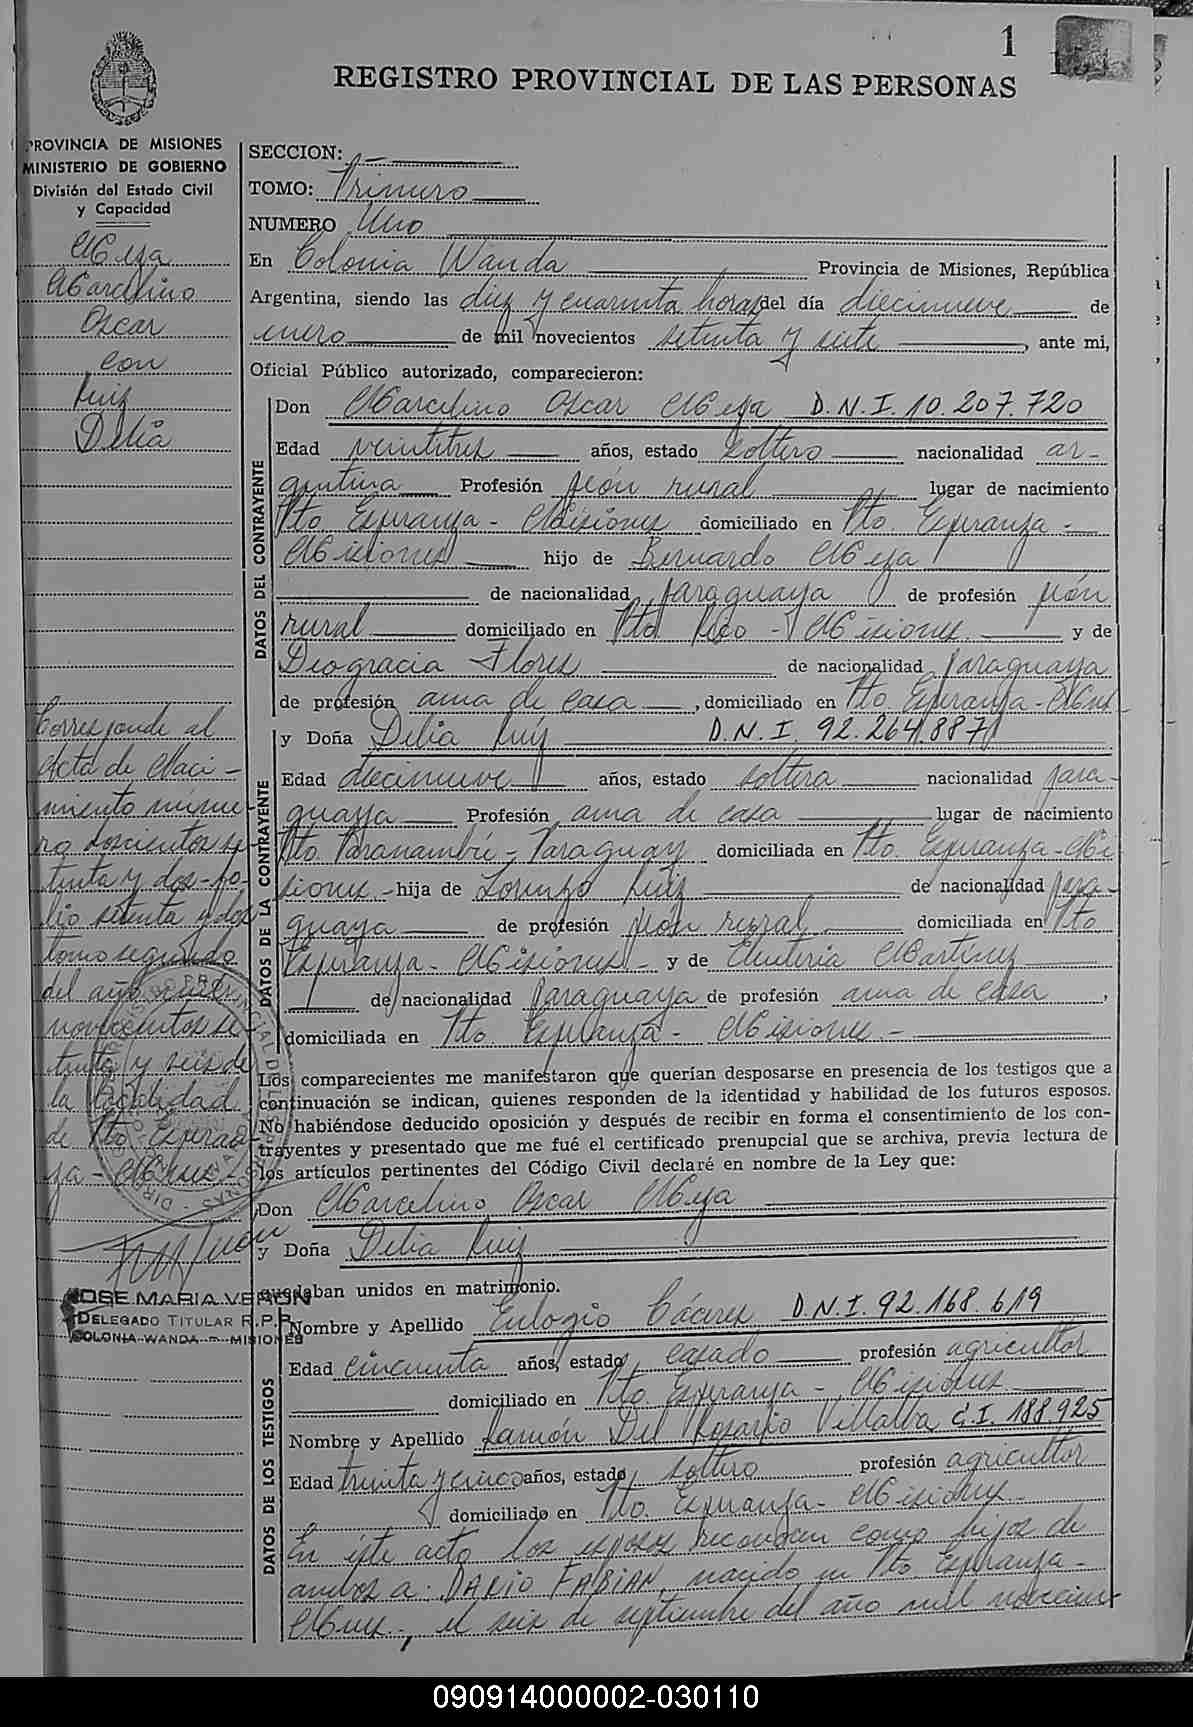 1
REGISTRO PROVINCIAL DE LAS PERSONAS
PROVINCIA DE MISIONES
MINISTERIO DE GOBIERNO
División del Estado Civil
y Capacidad
Meza
Marcelino
Oscar
con
Ruiz
Delia
Corresponde al
acta de Naci-
miento núme-
ro doscientos se-
tenta y dos-fo-
lio setenta y dos
tomo segundo
del año mil
novecientos se-
tenta y seis de
la localidad
de Pto Esperan-
za - Mnes -
JOSE MARIA VERON
DELEGADO TITULAR R.P.P.
COLONIA WANDA - MISIONES
SECCION: -
TOMO: Primero
NUMERO Uno
En Colonia Wanda Provincia de Misiones, República
Argentina, siendo las diez y cuarenta horas del día diecinueve de
enero de mil novecientos setenta y siete, ante mi,
Oficial Público autorizado, comparecieron:
DATOS DEL CONTRAYENTE
Don Marcelino Oscar Meza D.N.I. 10.207.720
Edad veintitres años, estado soltero nacionalidad ar-
gentina Profesión peón rural lugar de nacimiento
Pto Esperanza - Misiones domiciliado en Pto. Esperanza -
Misiones hijo de Bernardo Meza
de nacionalidad paraguaya de profesión peón
rural domiciliado en Pto Rico - Misiones. y de
Deogracia Flores de nacionalidad paraguaya
de profesión ama de casa, domiciliado en Pto. Esperanza - Mnes -
DATOS DE LA CONTRAYENTE
y Doña Delia Ruiz D.N.I. 92.264.887
Edad diecinueve años, estado soltera nacionalidad para-
guaya Profesión ama de casa lugar de nacimiento
Pto. Paranambú - Paraguay domiciliada en Pto. Esperanza - Mi-
siones - hija de Lorenzo Ruiz de nacionalidad para-
guaya de profesión peón rural domiciliada en Pto
Esperanza - Misiones - y de Eleuteria Martínez
de nacionalidad paraguaya de profesión ama de casa,
domiciliada en Pto Esperanza - Misiones. -
Los comparecientes me manifestaron que querían desposarse en presencia de los testigos que a
continuación se indican, quienes responden de la identidad y habilidad de los futuros esposos.
No habiéndose deducido oposición y después de recibir en forma el consentimiento de los con-
trayentes y presentado que me fué el certificado prenupcial que se archiva, previa lectura de
los artículos pertinentes del Código Civil declaré en nombre de la Ley que:
Don Marcelino Oscar Meza
y Doña Delia Ruiz
quedaban unidos en matrimonio.
DATOS DE LOS TESTIGOS
Nombre y Apellido Eulogio Cáceres D.N.I. 92.168.619
Edad cincuenta años, estado casado profesión agricultor
domiciliado en Pto. Esperanza - Misiones
Nombre y Apellido Ramón Del Rosario Villalba C.I. 188.925
Edad treinta y cinco años, estado soltero profesión agricultor
domiciliado en Pto. Esperanza - Misiones -
En éste acto los esposos reconocen como hijos de
ambos a: DARIO FABIAN, nacido en Pto. Esperanza -
Mnes -, el seis de septiembre del año mil novecien-
090914000002-030110